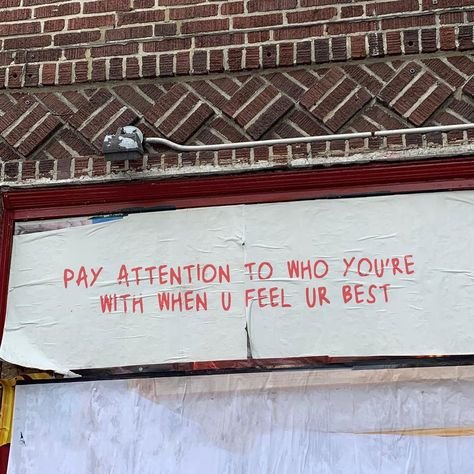 PAY ATTENTION TO WHO YOU'RE
WITH WHEN U FEEL UR BEST